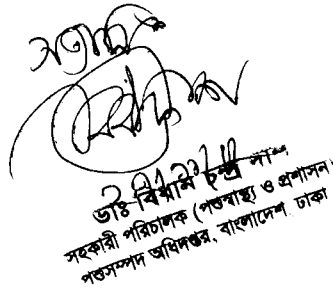 সত্যায়িত
ডাঃ বিধান চন্দ্র দাস
সহকারী পরিচালক (পশুস্বাস্থ্য ও প্রশাসন)
পশুসম্পদ অধিদপ্তর, বাংলাদেশ ঢাকা